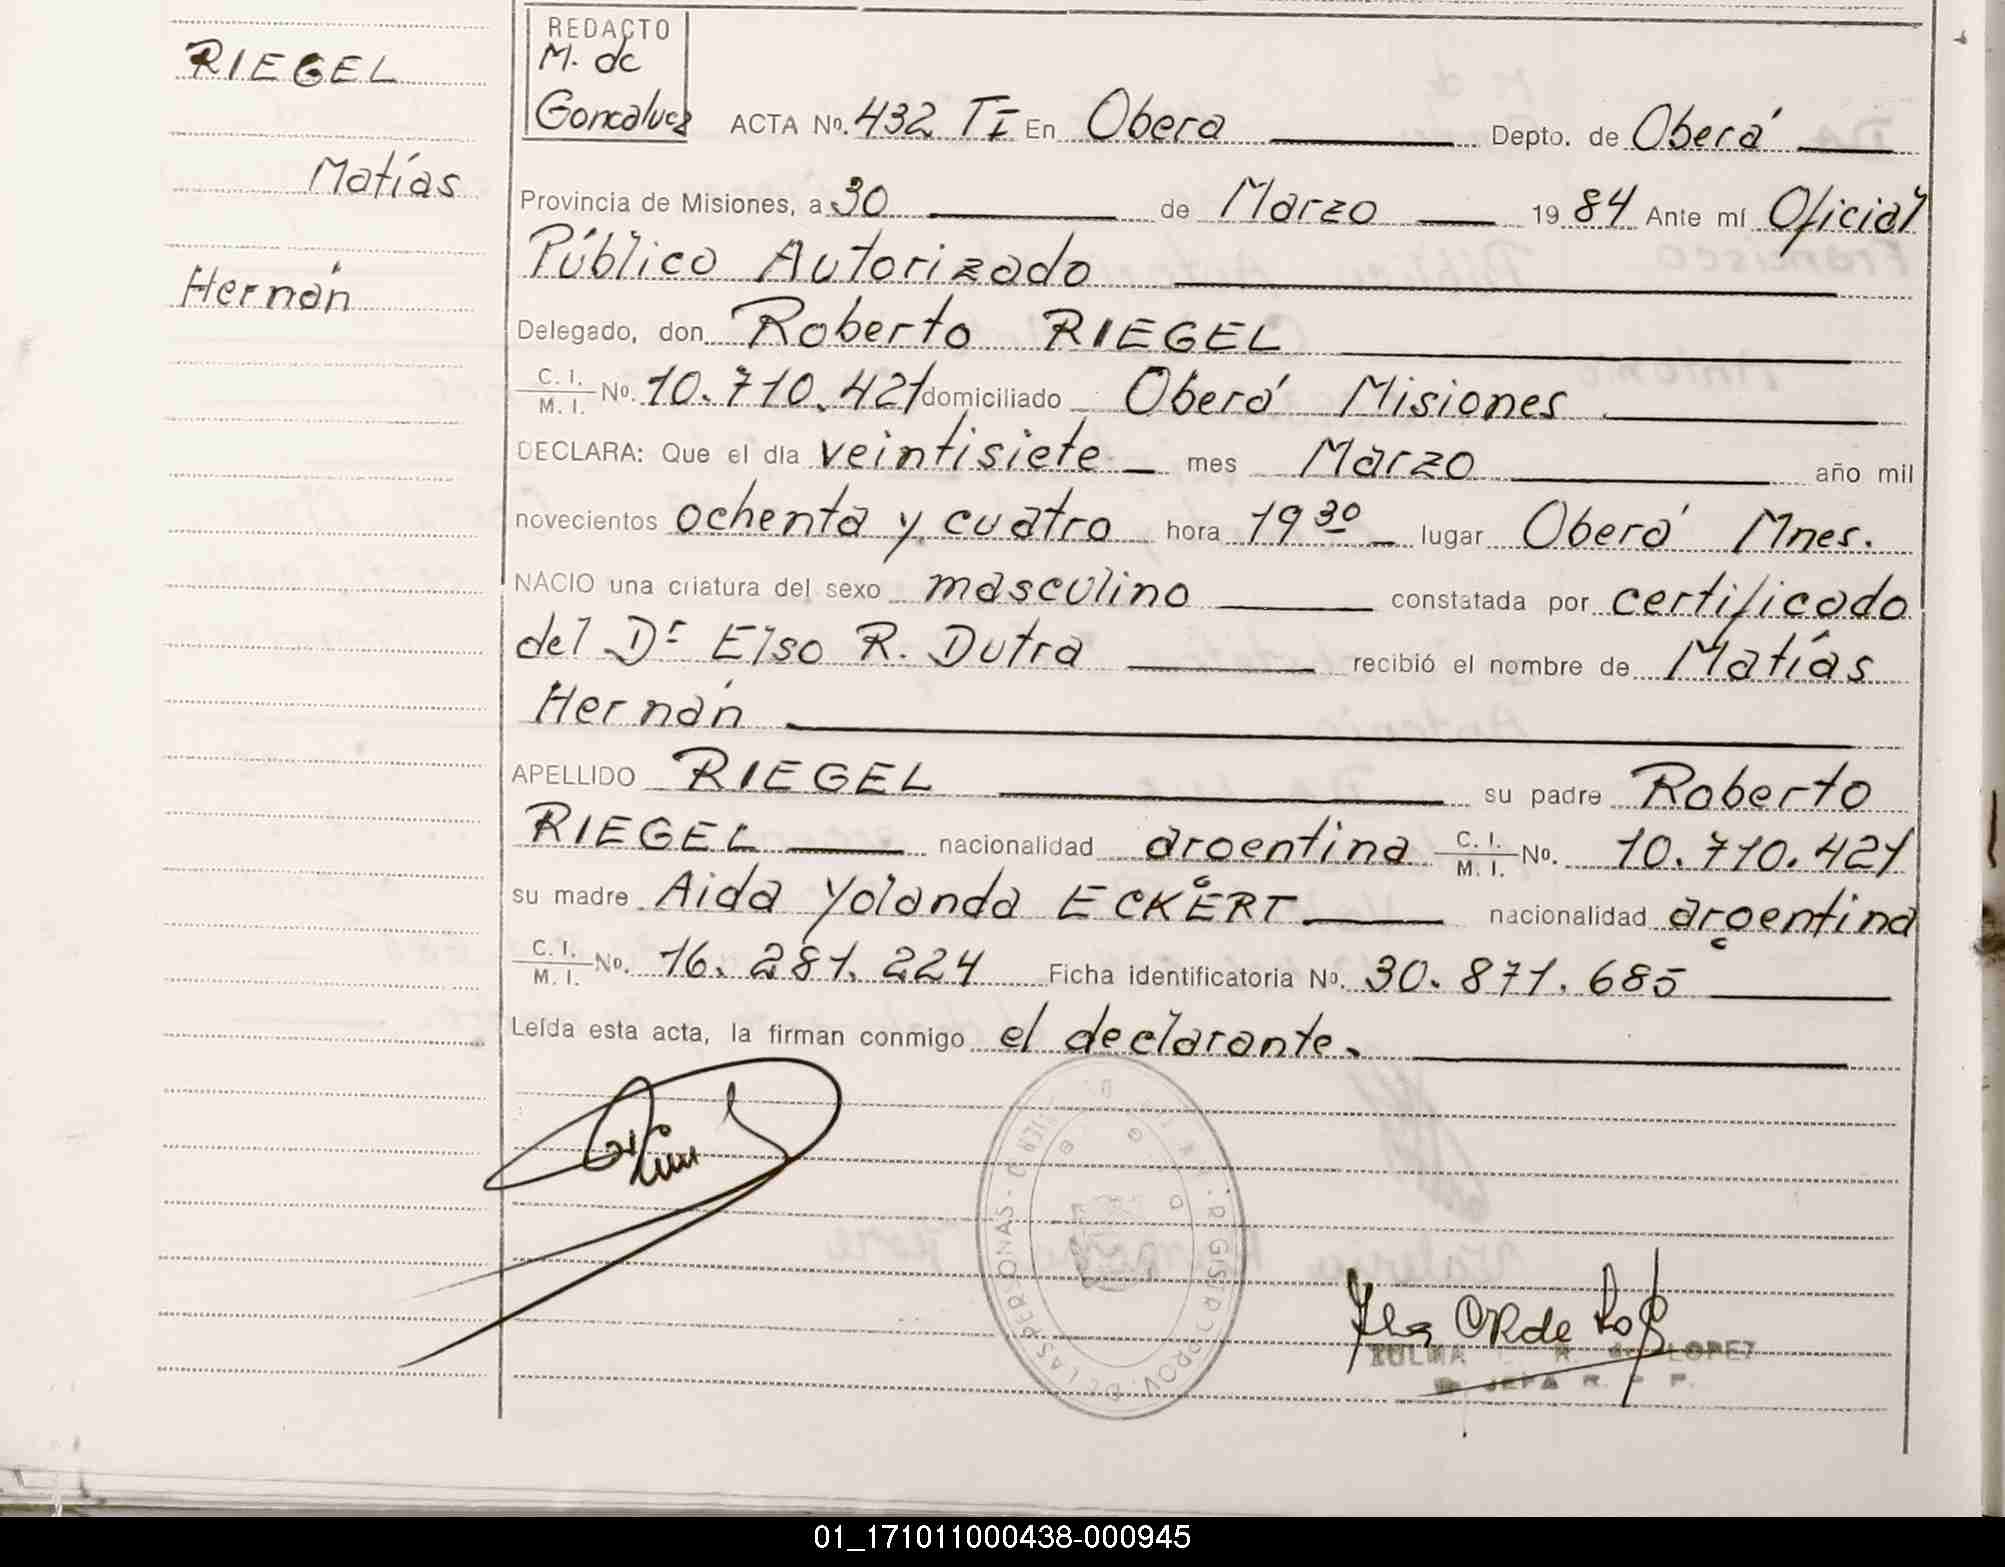 RIEGEL
Matías
Hernán
REDACTO
M. de
Goncalvez
ACTA No. 432 TI En Obera Depto. de Oberá
Provincia de Misiones, a 30 de Marzo 1984 Ante mí Oficial
Público Autorizado
Delegado, don Roberto RIEGEL
C. I. / M. I. No. 10.710.421 domiciliado Oberá Misiones
DECLARA: Que el día veintisiete mes Marzo año mil
novecientos ochenta y cuatro hora 19 30 lugar Oberá Mnes.
NACIO una criatura del sexo masculino constatada por certificado
del Dr Elso R. Dutra recibió el nombre de Matías
Hernán
APELLIDO RIEGEL su padre Roberto
RIEGEL nacionalidad argentina C. I. / M. I. No. 10.710.421
su madre Aida Yolanda ECKERT nacionalidad argentina
C. I. / M. I. No. 16.281.224 Ficha identificatoria No. 30.871.685
Leída esta acta, la firman conmigo el declarante.
REGISTRO PROV. DE LAS PERSONAS
ZULMA R. de LOPEZ
JEFA R.
01_171011000438-000945